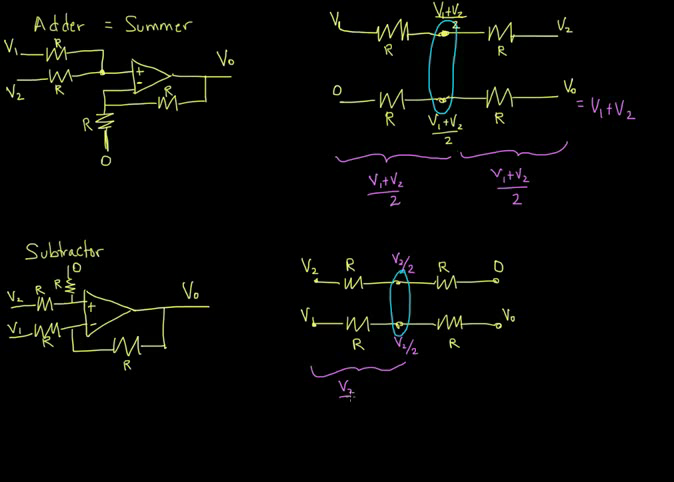 Adder = Summer
V₁
R
V₂
R
+
-
R
V₀
R
0
V₁
R
V₁+V₂
2
R
V₂
0
R
V₁+V₂
2
R
V₀
= V₁+V₂
V₁+V₂
2
V₁+V₂
2
Subtractor
0
R
V₂
R
+
V₁
R
-
R
V₀
V₂
R
V₂/2
R
0
V₁
R
V₂/2
R
V₀
V₂